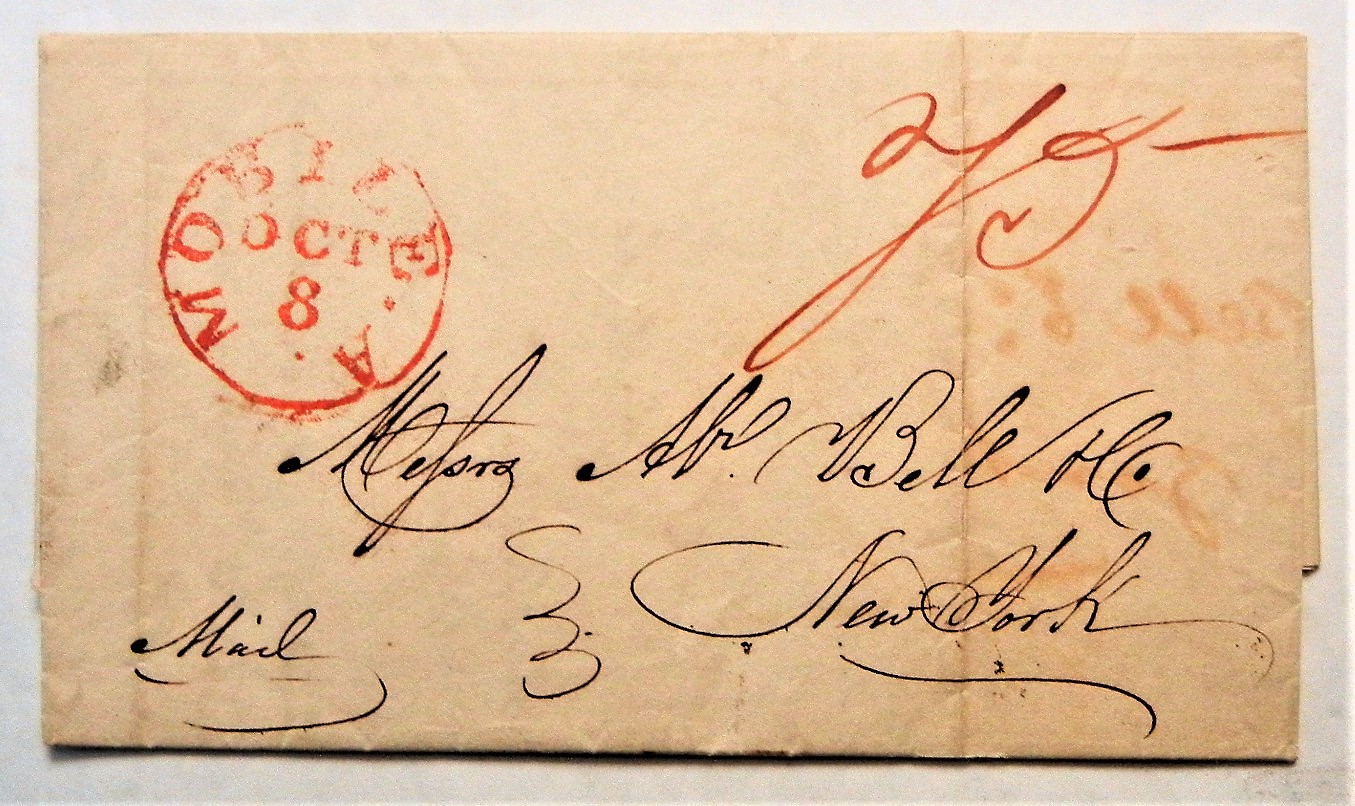 MOBILE A.
OCTE
8
75
Messrs Abr. Bell & Co
New York
Mail